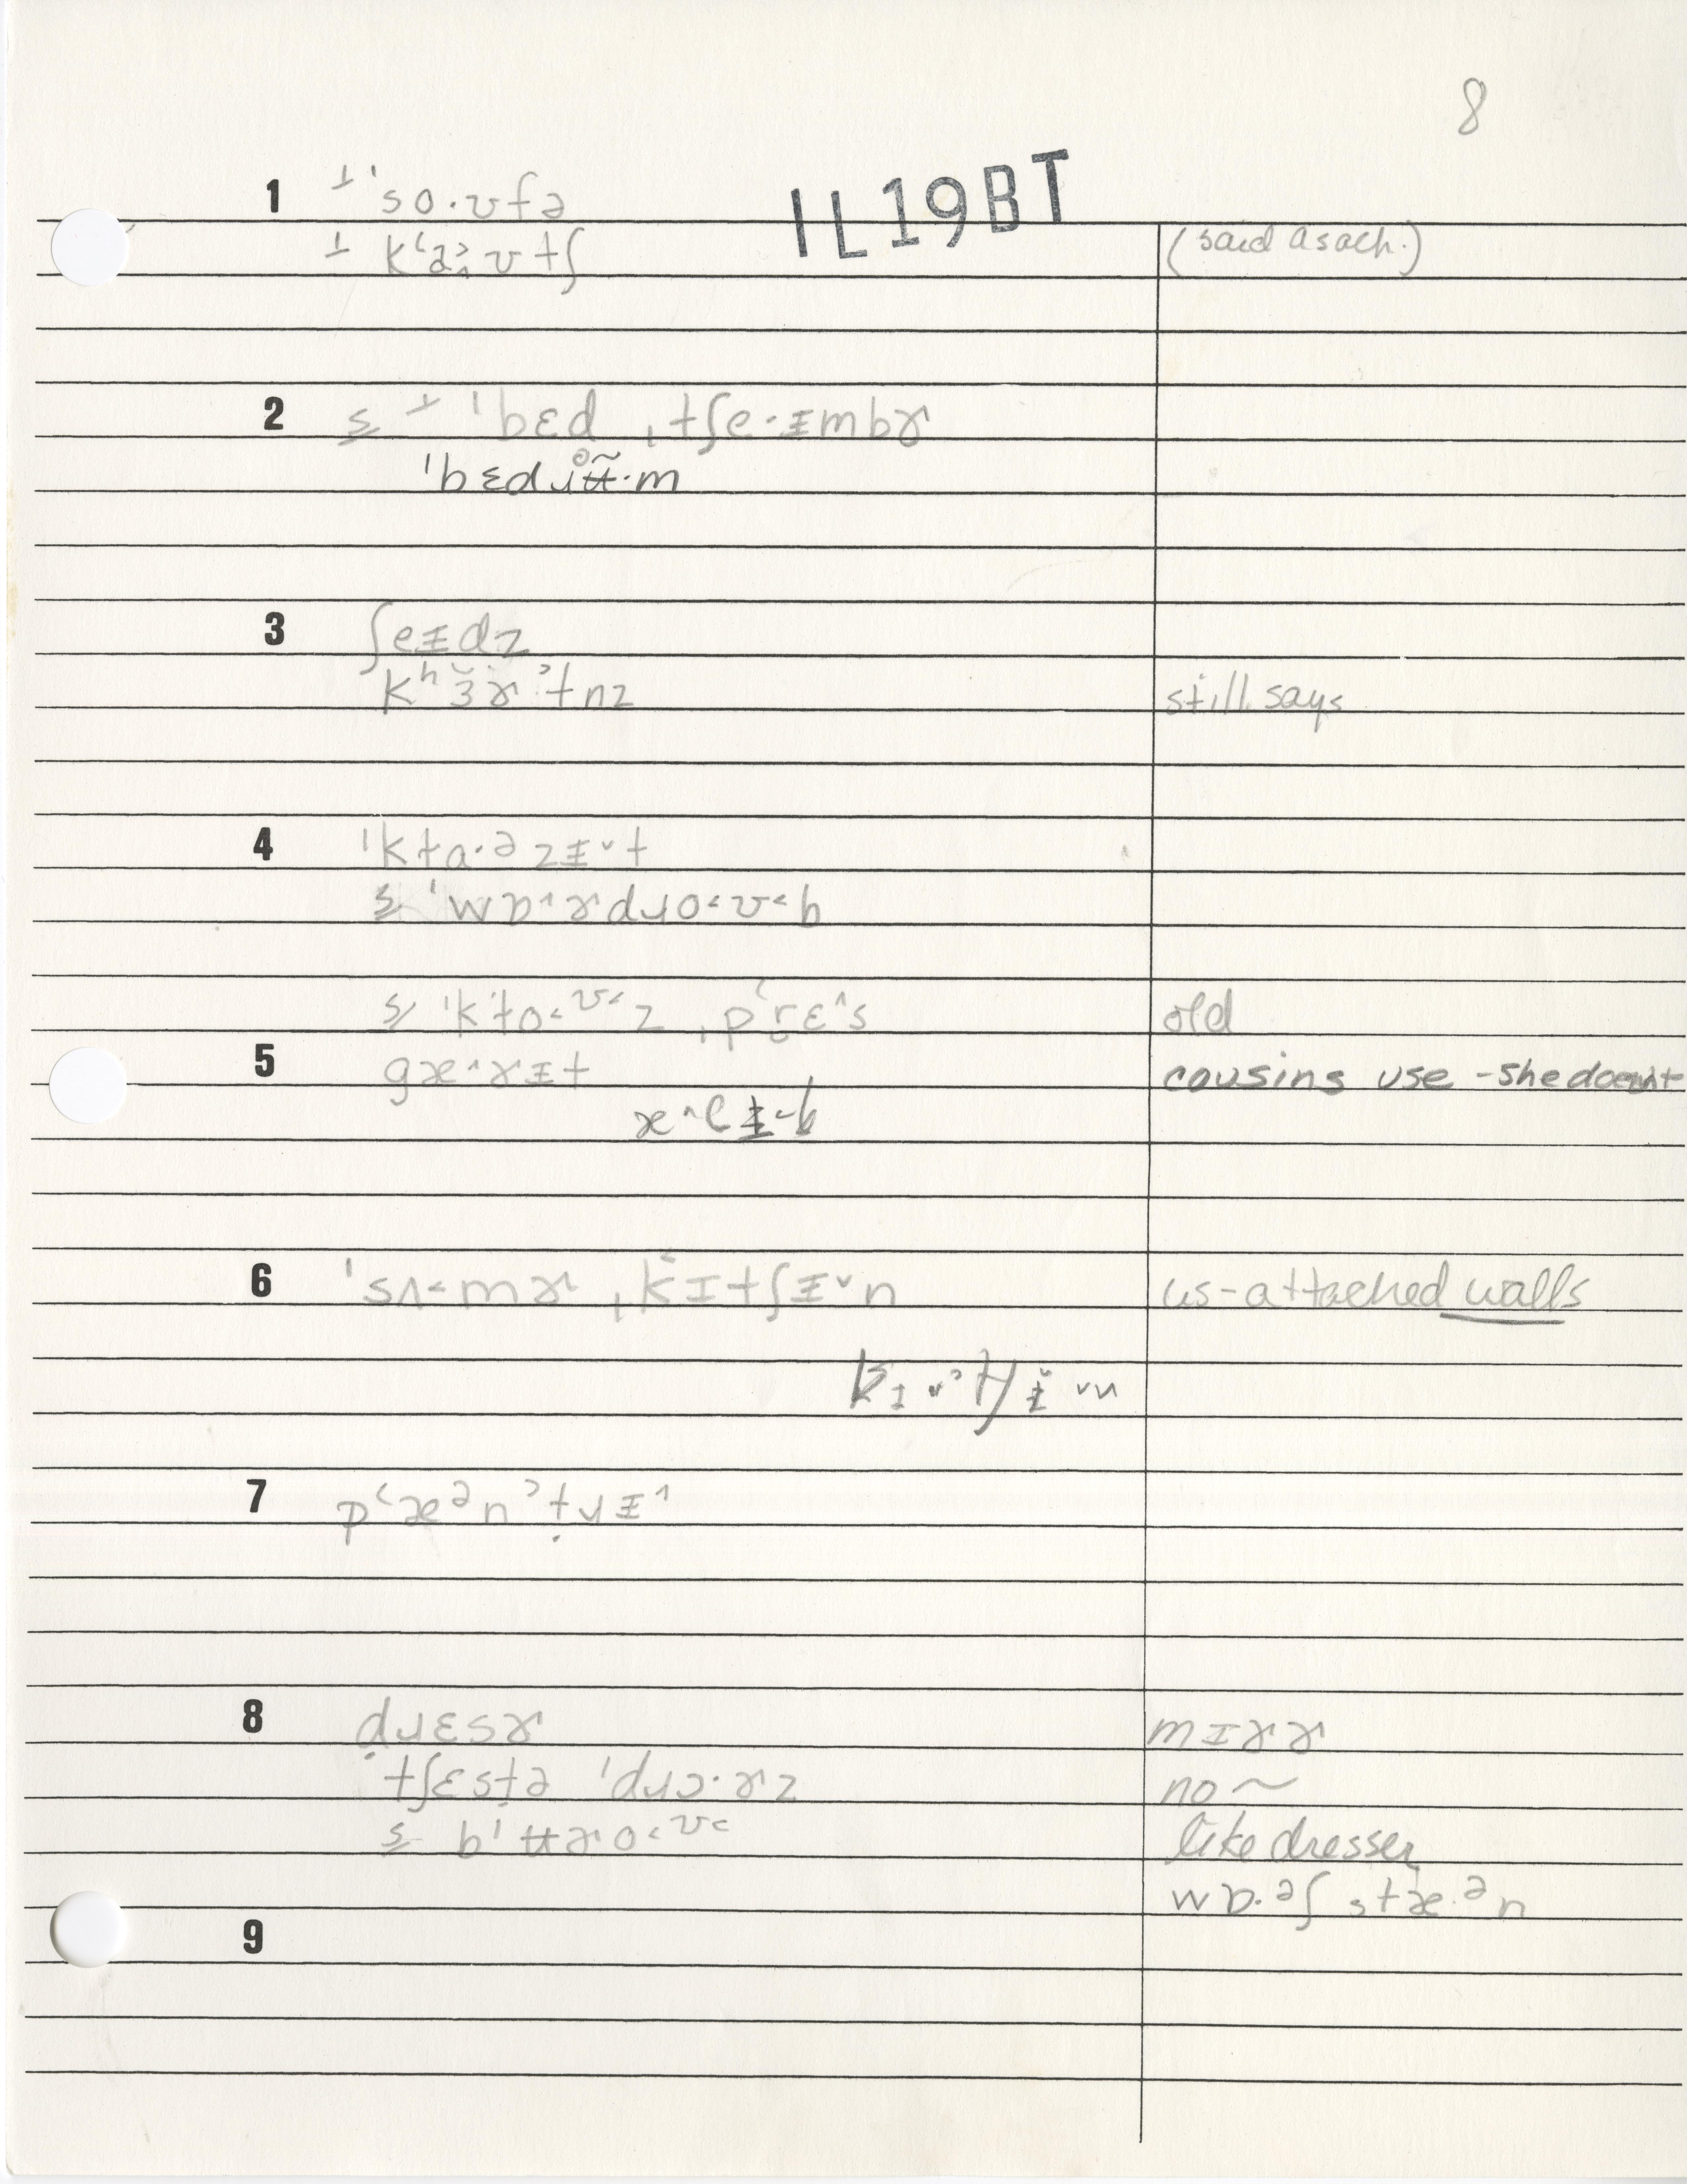 8
IL19BT
1 ⊥ ˈso·ʊfə
⊥ kʻa˃˄ʊtʃ (said as ach.)
2 s ⊥ ˈbɛd ˌtʃe·ɪmbɚ
ˈbɛdɹʉ·m
3 ʃeɪdz
kʰɜ̆ɚʔtnz still says
4 ˈkɫɑ·əzɪˇt
s ˈwɒ˄ɚdɹo˂ʊ˂b
s ˈkɫo˂ʊ˂z ˌpʻr̥ɛ˄s old
5 gæ˄ɚɪt cousins use - she doesn't
6 ˈsʌ˂mɚ ˌkɪtʃɪˇn us-attached walls
7 pʻæənʔtɹɪ˄
8 dɹɛsɚ mɪɚɚ
tʃɛstə ˈdɹɔ·ɚz no ~
s bˈʉɚo˂ʊ˂ like dresser
wɒ·əʃ stæ·ən
9